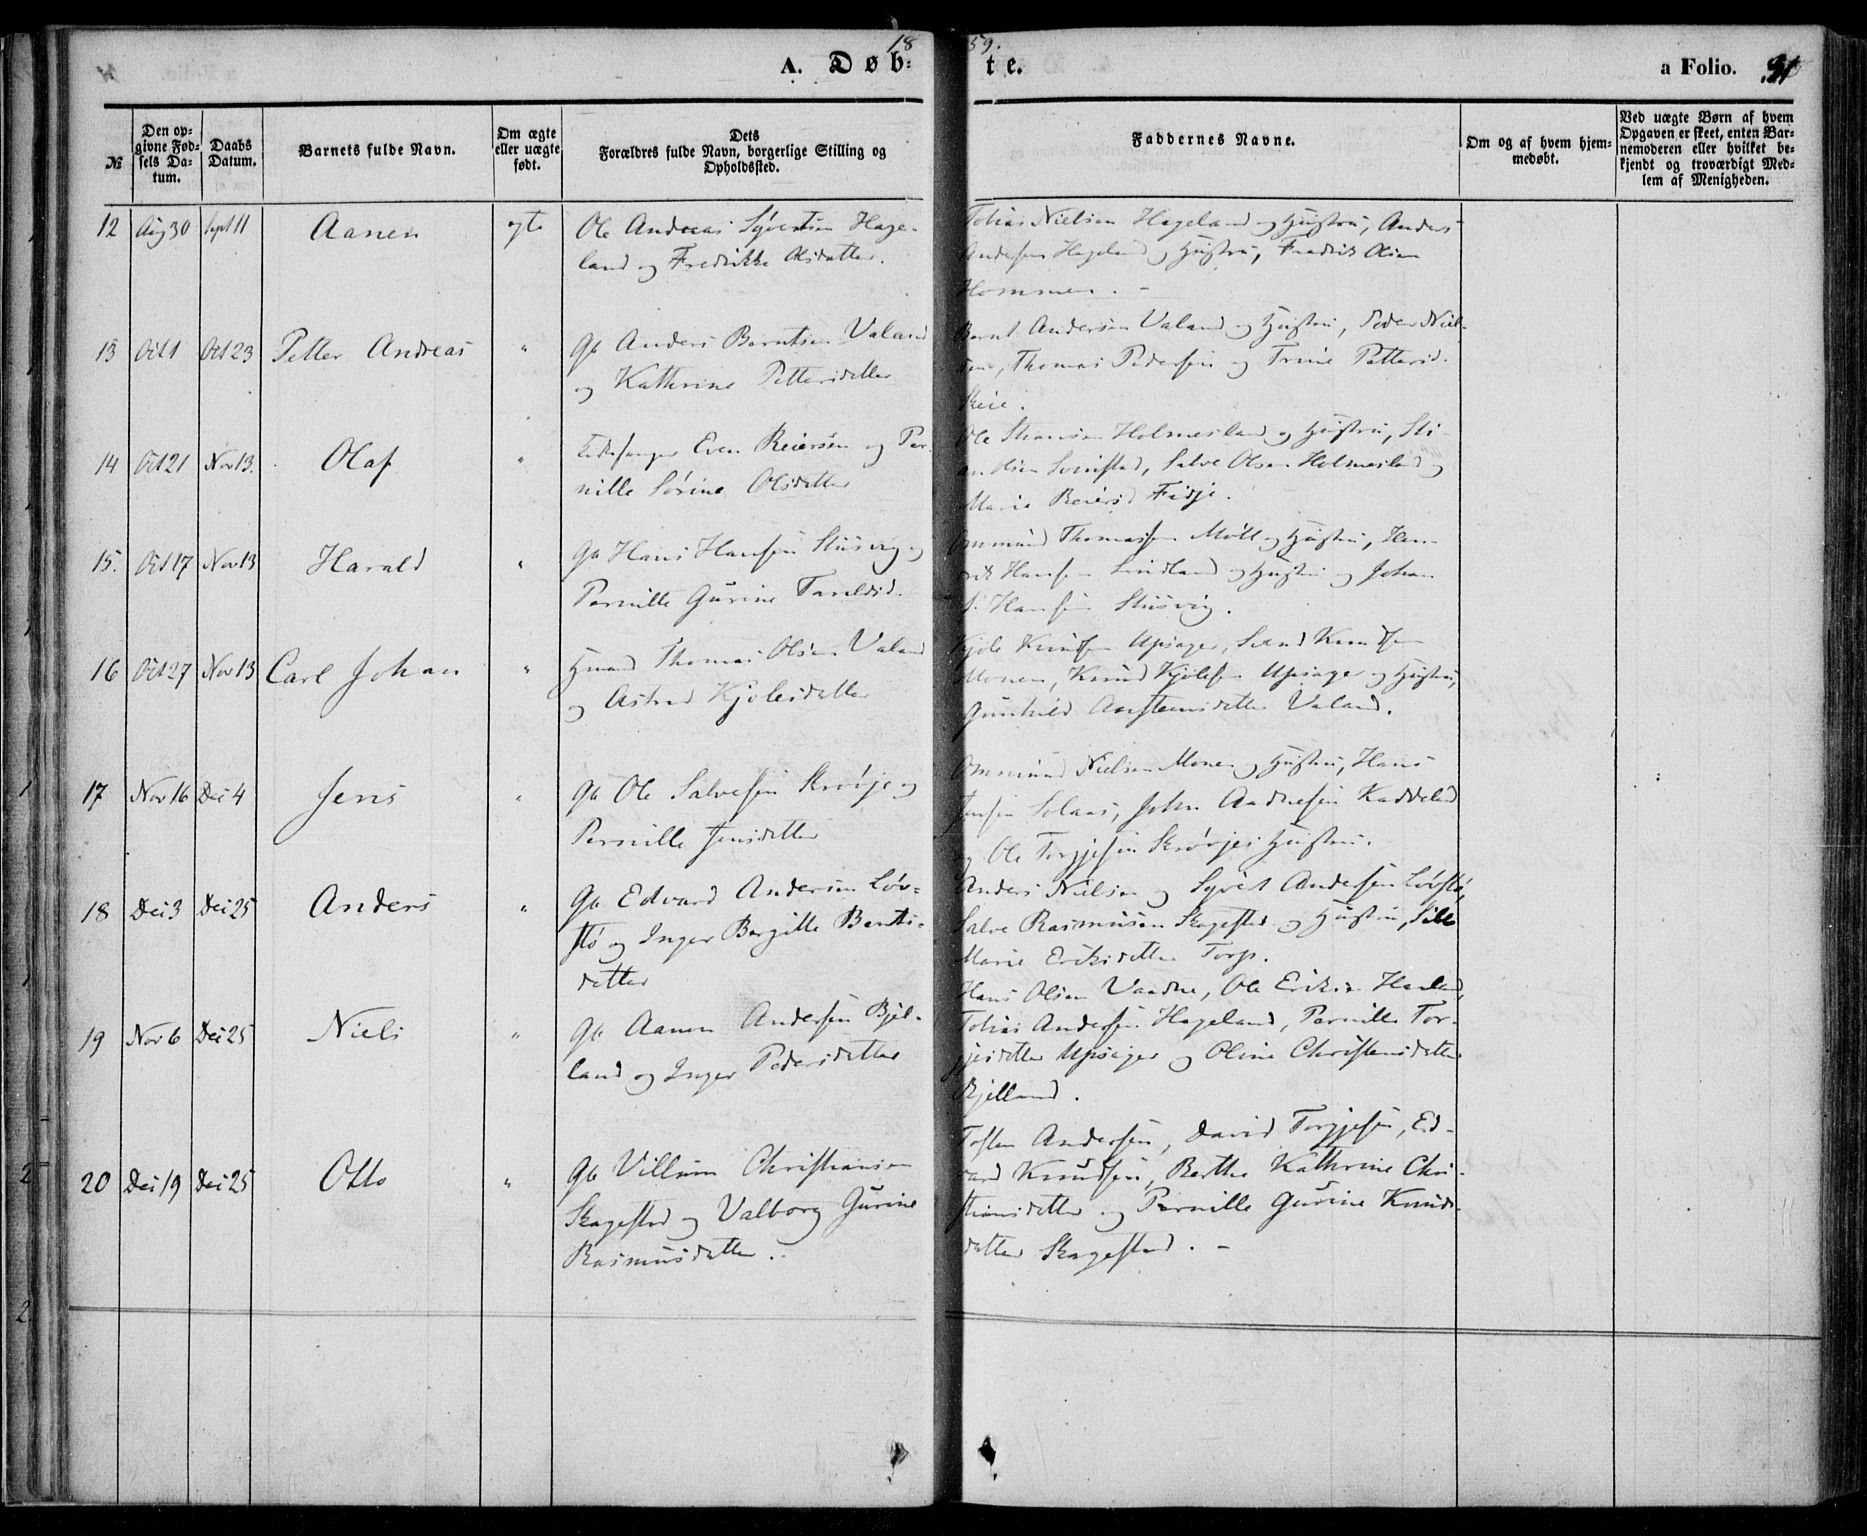 1859.
A. Døb-te. a Folio. 31
№
Den op-
givne Fød-
sels Da-
tum.
Daabs
Datum.
Barnets fulde Navn.
Om ægte
eller uægte
født.
Dets
Forældres fulde Navn, borgerlige Stilling og
Opholdssted.
Faddernes Navne.
Om og af hvem hjem-
medøbt.
Ved uægte Børn af hvem
Opgaven er skeet, enten Bar-
nemoderen eller hvilket be-
kjendt og troværdigt Med-
lem af Menigheden.
12 Aug 30 Sept 11 Aanen ægte
Ole Andreas Syvertsen Hage-
land og Fredrikke Olsdatter.
Tobias Nielsen Hageland og Hustru, Anders
Andersen Hageland og Hustru, Fredrik Olsen
Hommen. -
13 Oct 1 Oct 23 Petter Andreas "
Gb Anders Berntsen Valand
og Kathrine Pettersdatter
Bernt Andersen Valand og Hustru, Peder Niel-
sen, Thomas Pedersen og Trine Pettersd.
Skeie.
14 Oct 21 Nov 13. Olaf "
Even Reiersen og Per-
nille Sørine Olsdatter
Ole Holmesland og Hustru, Sti-
an Olsen, Salve Olsen Holmesland og
Marie Reiersd Fidje.
15. Oct 17 Nov 13 Harald "
Gb Hans Hansen Stusvig og
Pernille Gurine Taraldsd.
Ommund Thomassen Moll og Hustru, Hen-
rik Hansen Lindland og Hustru og Johan
Hansen Stusvig.
16 Oct 27 Nov 13 Carl Johan "
Huusmd Thomas Olsen Valand
og Astrid Kjølesdatter
Kjøle Knudsen Upsager, Svend Knudsen
Monen, Knud Kjølesen Upsager og Hustru,
Gunhild Aanstensdatter Valand.
17 Nov 16 Dec 4 Jens "
Gb Ole Salvesen Skrøvje og
Pernille Jensdatter
Ommund Nielsen Monen og Hustru, Hans
Jensen Solaas, John Andresen Kaddeland
og Ole Torgjesen Skrøvjes Hustru.
18 Dec 3 Dec 25 Anders "
Gb Edvard Andersen Løv-
stø og Inger Bergitte Bents-
datter
Anders Nielsen og Syvert Andersen Løvstø,
Salve Rasmusen Skagestad og Hustru, Sille
Marie Eriksdatter Torp.
19 Nov 6 Dec 25 Niels "
Gb Aanen Andersen Bjel-
land og Inger Pedersdatter
Hans Olsen Vaadne, Ole Eriksen Hauland,
Tobias Andersen Hageland, Pernille Tor-
gjesdatter Upsager og Oline Christensdatter
Bjelland.
20 Dec 19 Dec 25 Otto "
Gb Villum Christiansen
Skagestad og Valborg Gurine
Rasmusdatter.
Tosten Andersen, David Torgjesen, Ed-
vard Knudsen, Berthe Kathrine Chri-
stiansdatter og Pernille Gurine Knuds-
datter Skagestad. -